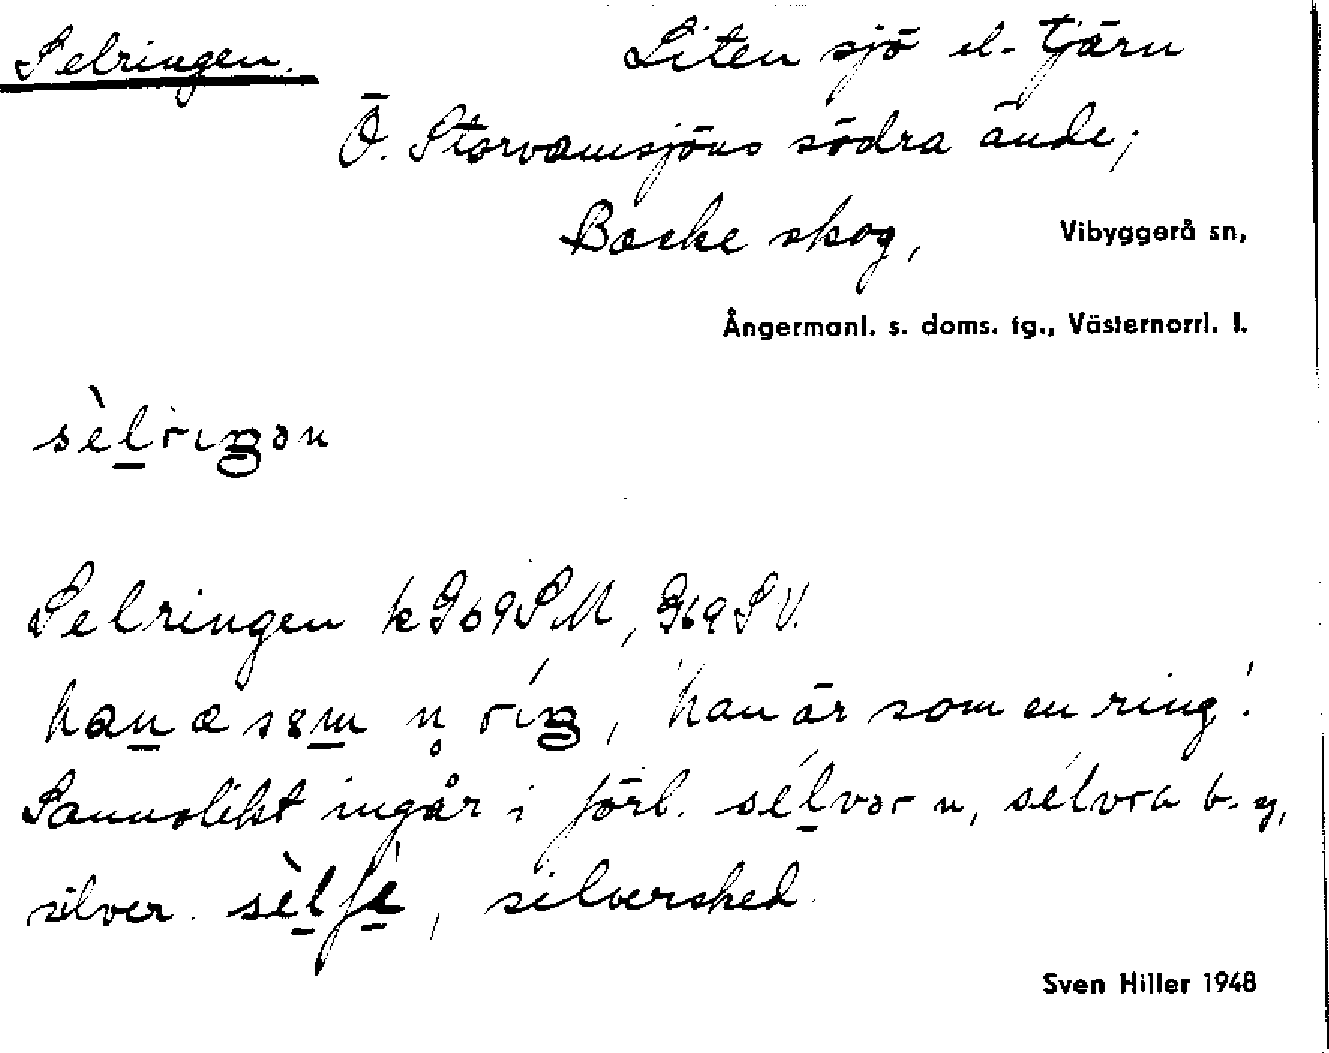 Selringen. Liten sjö el. tjärn
Ö. Storvamsjöns södra ände,
Backe skog, Vibyggerå sn,
Ångermanl. s. doms. tg., Västernorrl. l.
sèlriŋən
Selringen k G69SM, G69SV.
han æ sɞm n̥ ríŋ, 'han är som en ring'.
Sannolikt ingår i förl. sélvər n, sélvra b. y,
silver. sèlʃè, silversked.
Sven Hiller 1948